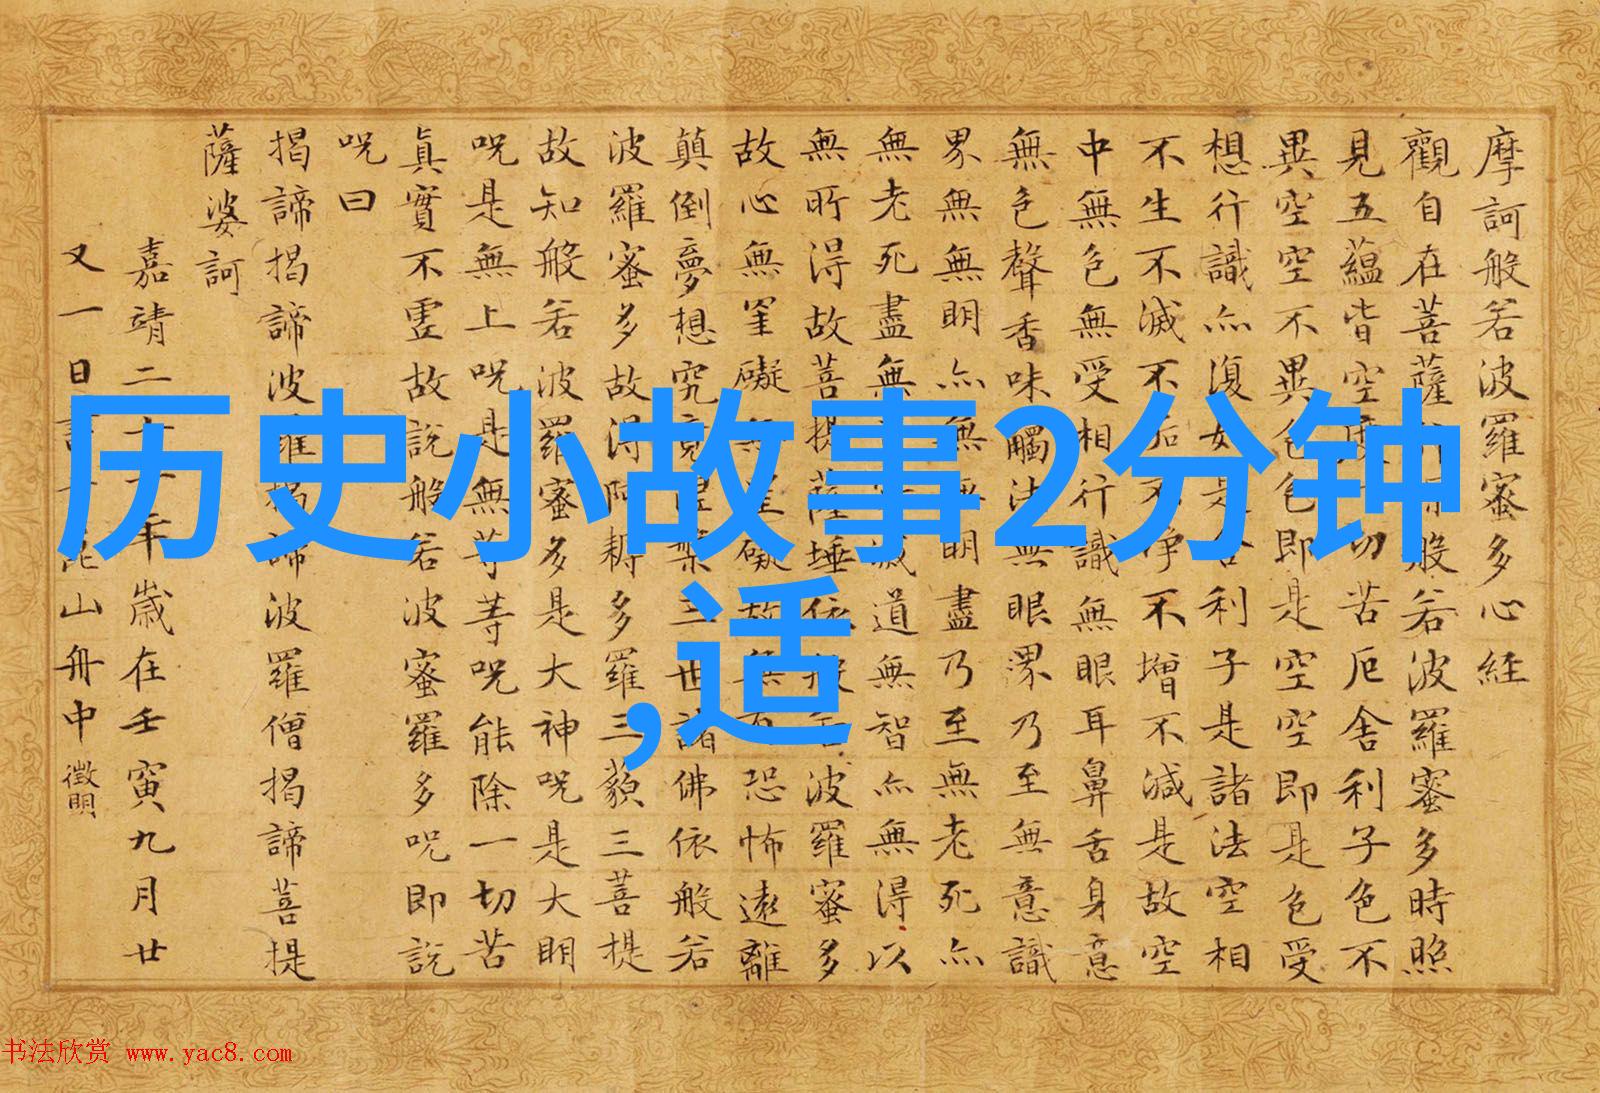 摩訶般若波羅蜜多心経
觀自在菩薩行深般若波羅蜜多時照
見五蘊皆空度一切苦厄舍利子色不
異空空不異色色即是空空即是色受
想行識亦復如是舍利子是諸法空相
不生不滅不垢不淨不增不減是故空
中無色無受相行識無眼耳鼻舌身意
無色聲香味觸法無眼界乃至無意識
界無無明亦無無明盡乃至無老死亦
無老死盡無苦集滅道無智亦無得以
無所得故菩提薩埵依般若波羅蜜多
故心無罣礙無罣礙故無有恐怖遠離
顛倒夢想究竟涅槃三世諸佛依般若
波羅蜜多故得阿耨多羅三藐三菩提
故知般若波羅蜜多是大神呪是大明
呪是無上呪是無等等呪能除一切苦
真實不虛故說般若波羅蜜多呪即說
呪曰
揭諦揭諦波羅揭諦波羅僧揭諦菩提
薩婆訶
嘉靖二十一年歲在壬寅九月廿
又一日書于崑山舟中 徵明
历史小故事2分钟
,适
书法欣赏 www.yac8.com